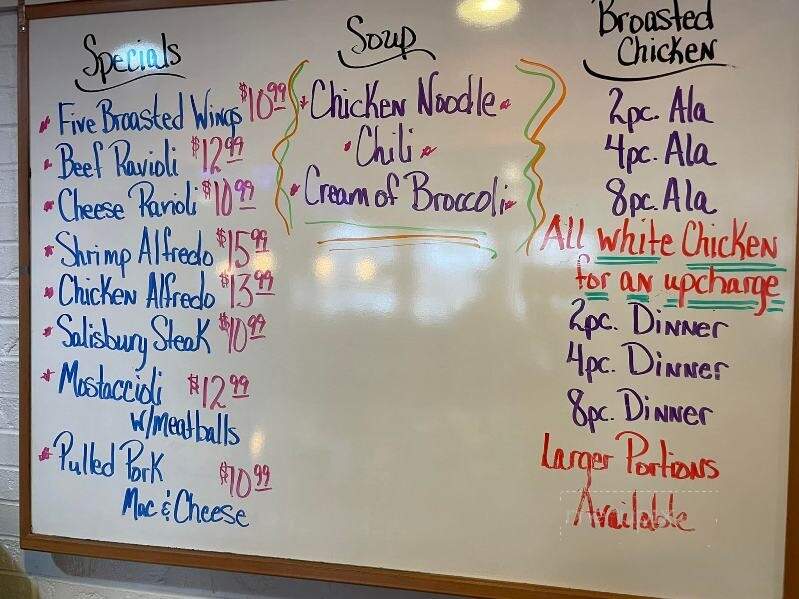 Specials
Five Broasted Wings $10.99
Beef Ravioli $12.99
Cheese Ravioli $10.99
Shrimp Alfredo $15.99
Chicken Alfredo $13.99
Salisbury Steak $10.99
Mostaccioli $12.99
w/Meatballs
Pulled Pork $10.99
Mac & Cheese
Soup
Chicken Noodle
Chili
Cream of Broccoli
Broasted
Chicken
2pc. Ala
4pc. Ala
8pc. Ala
All white Chicken
for an upcharge
2pc. Dinner
4pc. Dinner
8pc. Dinner
Larger Portions
Available